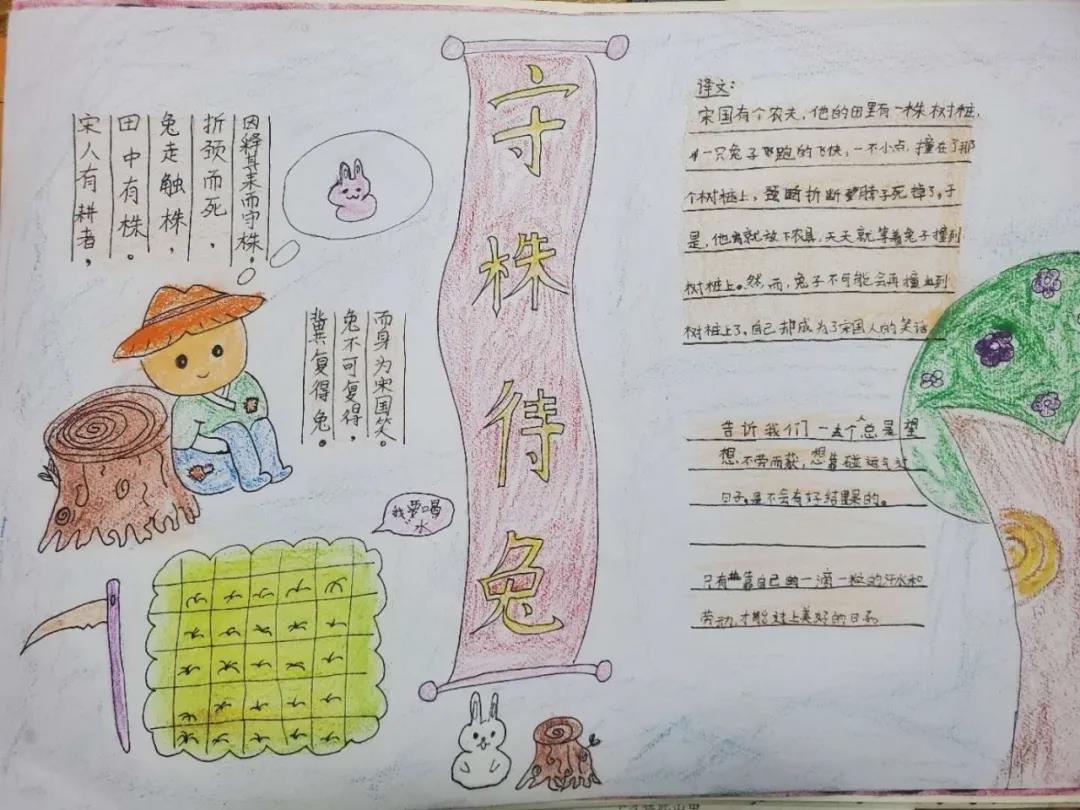 守株待兔
宋人有耕者，
田中有株。
兔走触株，
折颈而死，
因释其耒而守株。
冀复得兔。
兔不可复得，
而身为宋国笑。
我要喝
水
译文：
宋国有个农夫，他的田里有一株树桩，
一只兔子飞跑的飞快，一不小点，撞在了那
个树桩上，折断脖子死掉了。于
是，他就放下农具，天天就等着兔子撞到
树桩上。然而，兔子不可能会再撞到
树桩上了，自己却成为了宋国人的笑话
告诉我们一个总是望
想不劳而获，想靠碰运气过
日子。是不会有好结果的。
只有靠自己一滴一粒的汗水和
劳动才能过上美好的日子